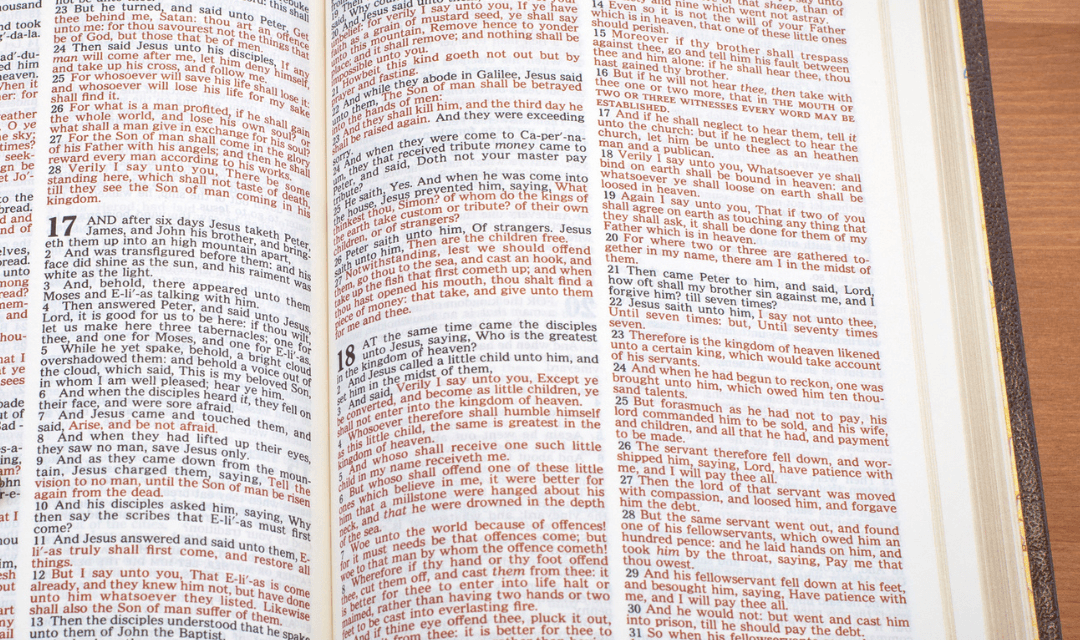 thousand
nd took
g'-da-la.
ad'-du-
ed him
eaven.
When it
er: for
reather
. O ye
he sky;
times?
seek-
gn be
et Jo'-
to the
bread.
d and
nd of
elves,
oread.
unto
mong
read?
nem-
and
hou-
hat I
at ye
sees
bade
ut of
Sad -
es-a-
ing,
am?
ohn
er-e-
at I
im,
esh
my
art
is
23 But he turned, and said unto Peter, Get
thee behind me, Satan: thou art an offence
unto me: for thou savourest not the things that
be of God, but those that be of men.
24 Then said Jesus unto his disciples, If any
man will come after me, let him deny himself,
and take up his cross, and follow me.
25 For whosoever will save his life shall lose it:
and whosoever will lose his life for my sake
shall find it.
26 For what is a man profited, if he shall gain
the whole world, and lose his own soul? or
what shall a man give in exchange for his soul?
27 For the Son of man shall come in the glory
of his Father with his angels; and then he shall
reward every man according to his works.
28 Verily I say unto you, There be some
standing here, which shall not taste of death,
till they see the Son of man coming in his
kingdom.
17 AND after six days Jesus taketh Peter,
James, and John his brother, and bring-
eth them up into an high mountain apart,
2 And was transfigured before them: and his
face did shine as the sun, and his raiment was
white as the light.
3 And, behold, there appeared unto them
Moses and E-li'-as talking with him.
4 Then answered Peter, and said unto Jesus,
Lord, it is good for us to be here: if thou wilt,
let us make here three tabernacles; one for
thee, and one for Moses, and one for E-li'-as.
5 While he yet spake, behold, a bright cloud
overshadowed them: and behold a voice out of
the cloud, which said, This is my beloved Son,
in whom I am well pleased; hear ye him.
6 And when the disciples heard it, they fell on
their face, and were sore afraid.
7 And Jesus came and touched them, and
said, Arise, and be not afraid.
8 And when they had lifted up their eyes,
they saw no man, save Jesus only.
9 And as they came down from the moun-
tain, Jesus charged them, saying, Tell the
vision to no man, until the Son of man be risen
again from the dead.
10 And his disciples asked him, saying, Why
then say the scribes that E-li'-as must first
come?
11 And Jesus answered and said unto them, E-
li'-as truly shall first come, and restore all
things.
12 But I say unto you, That E-li'-as is come
already, and they knew him not, but have done
unto him whatsoever they listed. Likewise
shall also the Son of man suffer of them.
13 Then the disciples understood that he spake
unto them of John the Baptist.
said, Why could
20 And Jesus said unto
unbelief: for verily I say unto you, If ye have
faith as a grain of mustard seed, ye shall say
unto this mountain, Remove hence to yonder
place; and it shall remove; and nothing shall be
impossible unto you.
21 Howbeit this kind goeth not out but by
prayer and fasting.
22 And while they abode in Galilee, Jesus said
unto them, The Son of man shall be betrayed
into the hands of men:
23 And they shall kill him, and the third day he
shall be raised again. And they were exceeding
sorry.
24 And when they were come to Ca-per'-na-
um, they that received tribute money came to
Peter, and said, Doth not your master pay
tribute?
25 He saith, Yes. And when he was come into
the house, Jesus prevented him, saying, What
thinkest thou, Simon? of whom do the kings of
the earth take custom or tribute? of their own
children, or of strangers?
26 Peter saith unto him, Of strangers. Jesus
saith unto him, Then are the children free.
27 Notwithstanding, lest we should offend
them, go thou to the sea, and cast an hook, and
take up the fish that first cometh up; and when
thou hast opened his mouth, thou shalt find a
piece of money: that take, and give unto them
for me and thee.
18 AT the same time came the disciples
unto Jesus, saying, Who is the greatest
in the kingdom of heaven?
2 And Jesus called a little child unto him, and
set him in the midst of them,
3 And said, Verily I say unto you, Except ye
be converted, and become as little children, ye
shall not enter into the kingdom of heaven.
4 Whosoever therefore shall humble himself
as this little child, the same is greatest in the
kingdom of heaven.
5 And whoso shall receive one such little
child in my name receiveth me.
6 But whoso shall offend one of these little
ones which believe in me, it were better for
him that a millstone were hanged about his
neck, and that he were drowned in the depth
of the sea.
7 Woe unto the world because of offences!
for it must needs be that offences come; but
woe to that man by whom the offence cometh!
8 Wherefore if thy hand or thy foot offend
thee, cut them off, and cast them from thee: it
is better for thee to enter into life halt or
maimed, rather than having two hands or two
feet to be cast into everlasting fire.
9 And if thine eye offend thee, pluck it out,
and cast it from thee: it is better for thee to
of that sheep, than of
ninety and nine which went not astray.
14 Even so it is not the will of your Father
which is in heaven, that one of these little ones
should perish.
15 Moreover if thy brother shall trespass
against thee, go and tell him his fault between
thee and him alone: if he shall hear thee, thou
hast gained thy brother.
16 But if he will not hear thee, then take with
thee one or two more, that in THE MOUTH OF
TWO OR THREE WITNESSES EVERY WORD MAY BE
ESTABLISHED.
17 And if he shall neglect to hear them, tell it
unto the church: but if he neglect to hear the
church, let him be unto thee as an heathen
man and a publican.
18 Verily I say unto you, Whatsoever ye shall
bind on earth shall be bound in heaven: and
whatsoever ye shall loose on earth shall be
loosed in heaven.
19 Again I say unto you, That if two of you
shall agree on earth as touching any thing that
they shall ask, it shall be done for them of my
Father which is in heaven.
20 For where two or three are gathered to-
gether in my name, there am I in the midst of
them.
21 Then came Peter to him, and said, Lord,
how oft shall my brother sin against me, and I
forgive him? till seven times?
22 Jesus saith unto him, I say not unto thee,
Until seven times: but, Until seventy times
seven.
23 Therefore is the kingdom of heaven likened
unto a certain king, which would take account
of his servants.
24 And when he had begun to reckon, one was
brought unto him, which owed him ten thou-
sand talents.
25 But forasmuch as he had not to pay, his
lord commanded him to be sold, and his wife,
and children, and all that he had, and payment
to be made.
26 The servant therefore fell down, and wor-
shipped him, saying, Lord, have patience with
me, and I will pay thee all.
27 Then the lord of that servant was moved
with compassion, and loosed him, and forgave
him the debt.
28 But the same servant went out, and found
one of his fellowservants, which owed him an
hundred pence: and he laid hands on him, and
took him by the throat, saying, Pay me that
thou owest.
29 And his fellowservant fell down at his feet,
and besought him, saying, Have patience with
me, and I will pay thee all.
30 And he would not: but went and cast him
into prison, till he should pay the debt.
31 So when his fellowservants